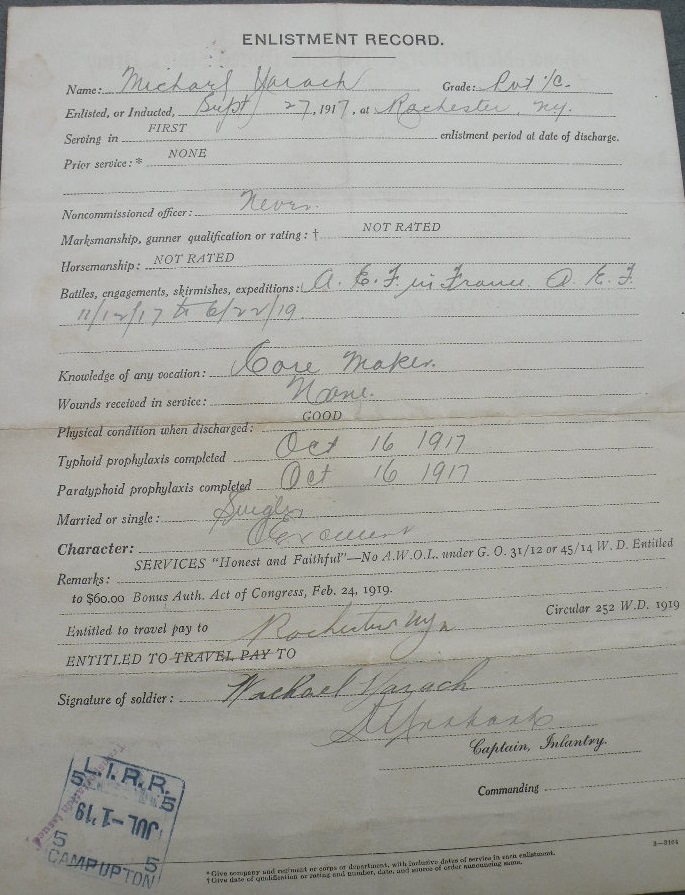 ENLISTMENT RECORD.
Name: Michael Harach Grade: Pvt 1/c.
Enlisted, or Inducted, Sept 27, 1917, at Rochester, NY.
Serving in FIRST enlistment period at date of discharge.
Prior service: * NONE
Noncommissioned officer: Never.
Marksmanship, gunner qualification or rating: † NOT RATED
Horsemanship: NOT RATED
Battles, engagements, skirmishes, expeditions: A. E. F. in France. A. E. F.
11/12/17 to 6/22/19
Knowledge of any vocation: Core Maker.
Wounds received in service: None.
Physical condition when discharged: GOOD
Typhoid prophylaxis completed Oct 16 1917
Paratyphoid prophylaxis completed Oct 16 1917
Married or single: Single
Character: Excellent
Remarks: SERVICES "Honest and Faithful"—No A.W.O.L. under G. O. 31/12 or 45/14 W. D. Entitled
to $60.00 Bonus Auth. Act of Congress, Feb. 24, 1919.
Circular 252 W.D. 1919
Entitled to travel pay to Rochester NY
ENTITLED TO TRAVEL PAY TO
Signature of soldier: Michael Harach
Captain, Infantry.
Commanding
L.I.R.R.
5 5
JUL -1 '19
5 5
CAMP UPTON
3—3164
*Give company and regiment or corps or department, with inclusive dates of service in each enlistment.
†Give date of qualification or rating and number, date, and source of order announcing same.